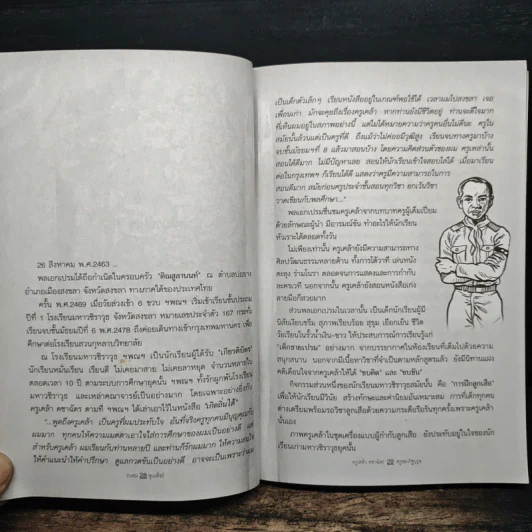 26 สิงหาคม พ.ศ.2463 ...
พลเอกเปรมได้ถือกำเนิดในครอบครัว "ติณสูลานนท์" ณ ตำบลบ่อยาง
อำเภอเมืองสงขลา จังหวัดสงขลา ทางภาคใต้ของประเทศไทย
ครั้น พ.ศ.2469 เมื่อวัยล่วงเข้า 6 ขวบ ฯพณฯ เริ่มเข้าเรียนชั้นประถม
ปีที่ 1 โรงเรียนมหาวชิราวุธ จังหวัดสงขลา หมายเลขประจำตัว 167 กระทั่ง
เรียนจบชั้นมัธยมปีที่ 6 พ.ศ.2478 ถึงค่อยเดินทางเข้ากรุงเทพมหานคร เพื่อ
ศึกษาต่อโรงเรียนสวนกุหลาบวิทยาลัย
ณ โรงเรียนมหาวชิราวุธ ฯพณฯ เป็นนักเรียนผู้ได้รับ "เกียรติบัตร"
นักเรียนหมั่นเรียน เรียนดี ไม่เคยมาสาย ไม่เคยลาหยุด จำนวนหลายใบ
ตลอดเวลา 10 ปี ตามระบบการศึกษายุคนั้น ฯพณฯ ทั้งรักผูกพันโรงเรียน
มหาวชิราวุธ และเหล่าคณาจารย์เป็นอย่างมาก โดยเฉพาะอย่างยิ่งกับ
ครูเคล้า คชาฉัตร ตามที่ ฯพณฯ ได้เล่าเอาไว้ในหนังสือ
"...พูดถึงครูเคล้า เป็นครูที่ผมประทับใจ อันที่จริงครูทุกคนมีบุญคุณกับ
ผมมาก ทุกคนให้ความเมตตาเอาใจใส่การศึกษาของผมเป็นอย่างดี และ
สำหรับครูเคล้า ผมเรียนกับท่านหลายปี และท่านก็รักผมมาก ให้ความสนใจ
ให้คำแนะนำให้คำปรึกษา ดูแลกวดขันเป็นอย่างดี อาจจะเป็นเพราะว่าผม
28
เป็นเด็กตัวเล็กๆ เรียนหนังสืออยู่ในเกณฑ์พอใช้ได้ เวลาผมไปสงขลา เจอ
เพื่อนเก่า มักจะคุยถึงเรื่องครูเคล้า หากท่านยังมีชีวิตอยู่ ท่านจะดีใจมาก
ที่เห็นผมอยู่ในสภาพอย่างนี้ แต่ไม่ได้หมายความว่าครูคนอื่นไม่ดีนะ ครูใน
สมัยนั้นล้วนแต่เป็นครูที่ดี ถึงแม้ว่าไม่ค่อยมีวุฒิสูง เรียนจบทางครูมาบ้าง
จบชั้นมัธยมฯที่ 8 แล้วมาสอนบ้าง โดยความคิดส่วนตัวของผม ครูเหล่านั้น
สอนได้ดีมาก ไม่มีปัญหาเลย สอนให้นักเรียนเข้าใจสอบไล่ได้ เมื่อมาเรียน
ต่อในกรุงเทพฯ ก็เรียนได้ดี แสดงว่าครูมีความสามารถในการ
สอนดีมาก สมัยก่อนครูประจำชั้นสอนทุกวิชา ยกเว้นวิชา
วาดเขียนกับพลศึกษา..."
พลเอกเปรมชื่นชมครูเคล้าจากบทบาทครูผู้เต็มเปี่ยม
ด้วยลักษณะผู้นำ มีอารมณ์ขัน ทำอะไรให้นักเรียน
หัวเราะได้ตลอดทั้งวัน
ไม่เพียงเท่านั้น ครูเคล้ายังมีความสามารถทาง
ศิลปวัฒนธรรมหลายด้าน ทั้งการโต้วาที เล่นหนัง
ตะลุง รำมโนรา ตลอดจนการแสดงและการกำกับ
ละครเวที นอกจากนั้น ครูเคล้ายังสอนหนังสือเก่ง
ลายมือก็สวยมาก
ส่วนพลเอกเปรมในเวลานั้น เป็นเด็กนักเรียนผู้มี
นิสัยเรียบร้อย สุภาพเรียบร้อย สุขุม เยือกเย็น ชีวิต
วัยเรียนในรั้วน้ำเงิน-ขาว ให้ประสบการณ์การเรียนรู้แก่
"เด็กชายเปรม" อย่างมาก จากบรรยากาศในห้องเรียนที่เต็มไปด้วยความ
สนุกสนาน นอกจากมีเนื้อหาวิชาที่จำเป็นตามหลักสูตรแล้ว ยังมีนิทานแฝง
คติเตือนใจจากครูเคล้าให้ได้ "ขบคิด" และ "ขบขัน"
กิจกรรมส่วนหนึ่งของนักเรียนมหาวชิราวุธสมัยนั้น คือ "การฝึกลูกเสือ"
เพื่อให้นักเรียนมีวินัย สร้างทักษะและค่านิยมอันเหมาะสม การที่เด็กทุกคน
ต่างเตรียมพร้อมรอวิชาลูกเสือด้วยความกระตือรือร้นทุกครั้งเพราะครูเคล้า
นั่นเอง
ภาพครูเคล้าในชุดเครื่องแบบผู้กำกับลูกเสือ ยังประทับอยู่ในใจของนัก
เรียนเก่ามหาวชิราวุธยุคนั้น
29